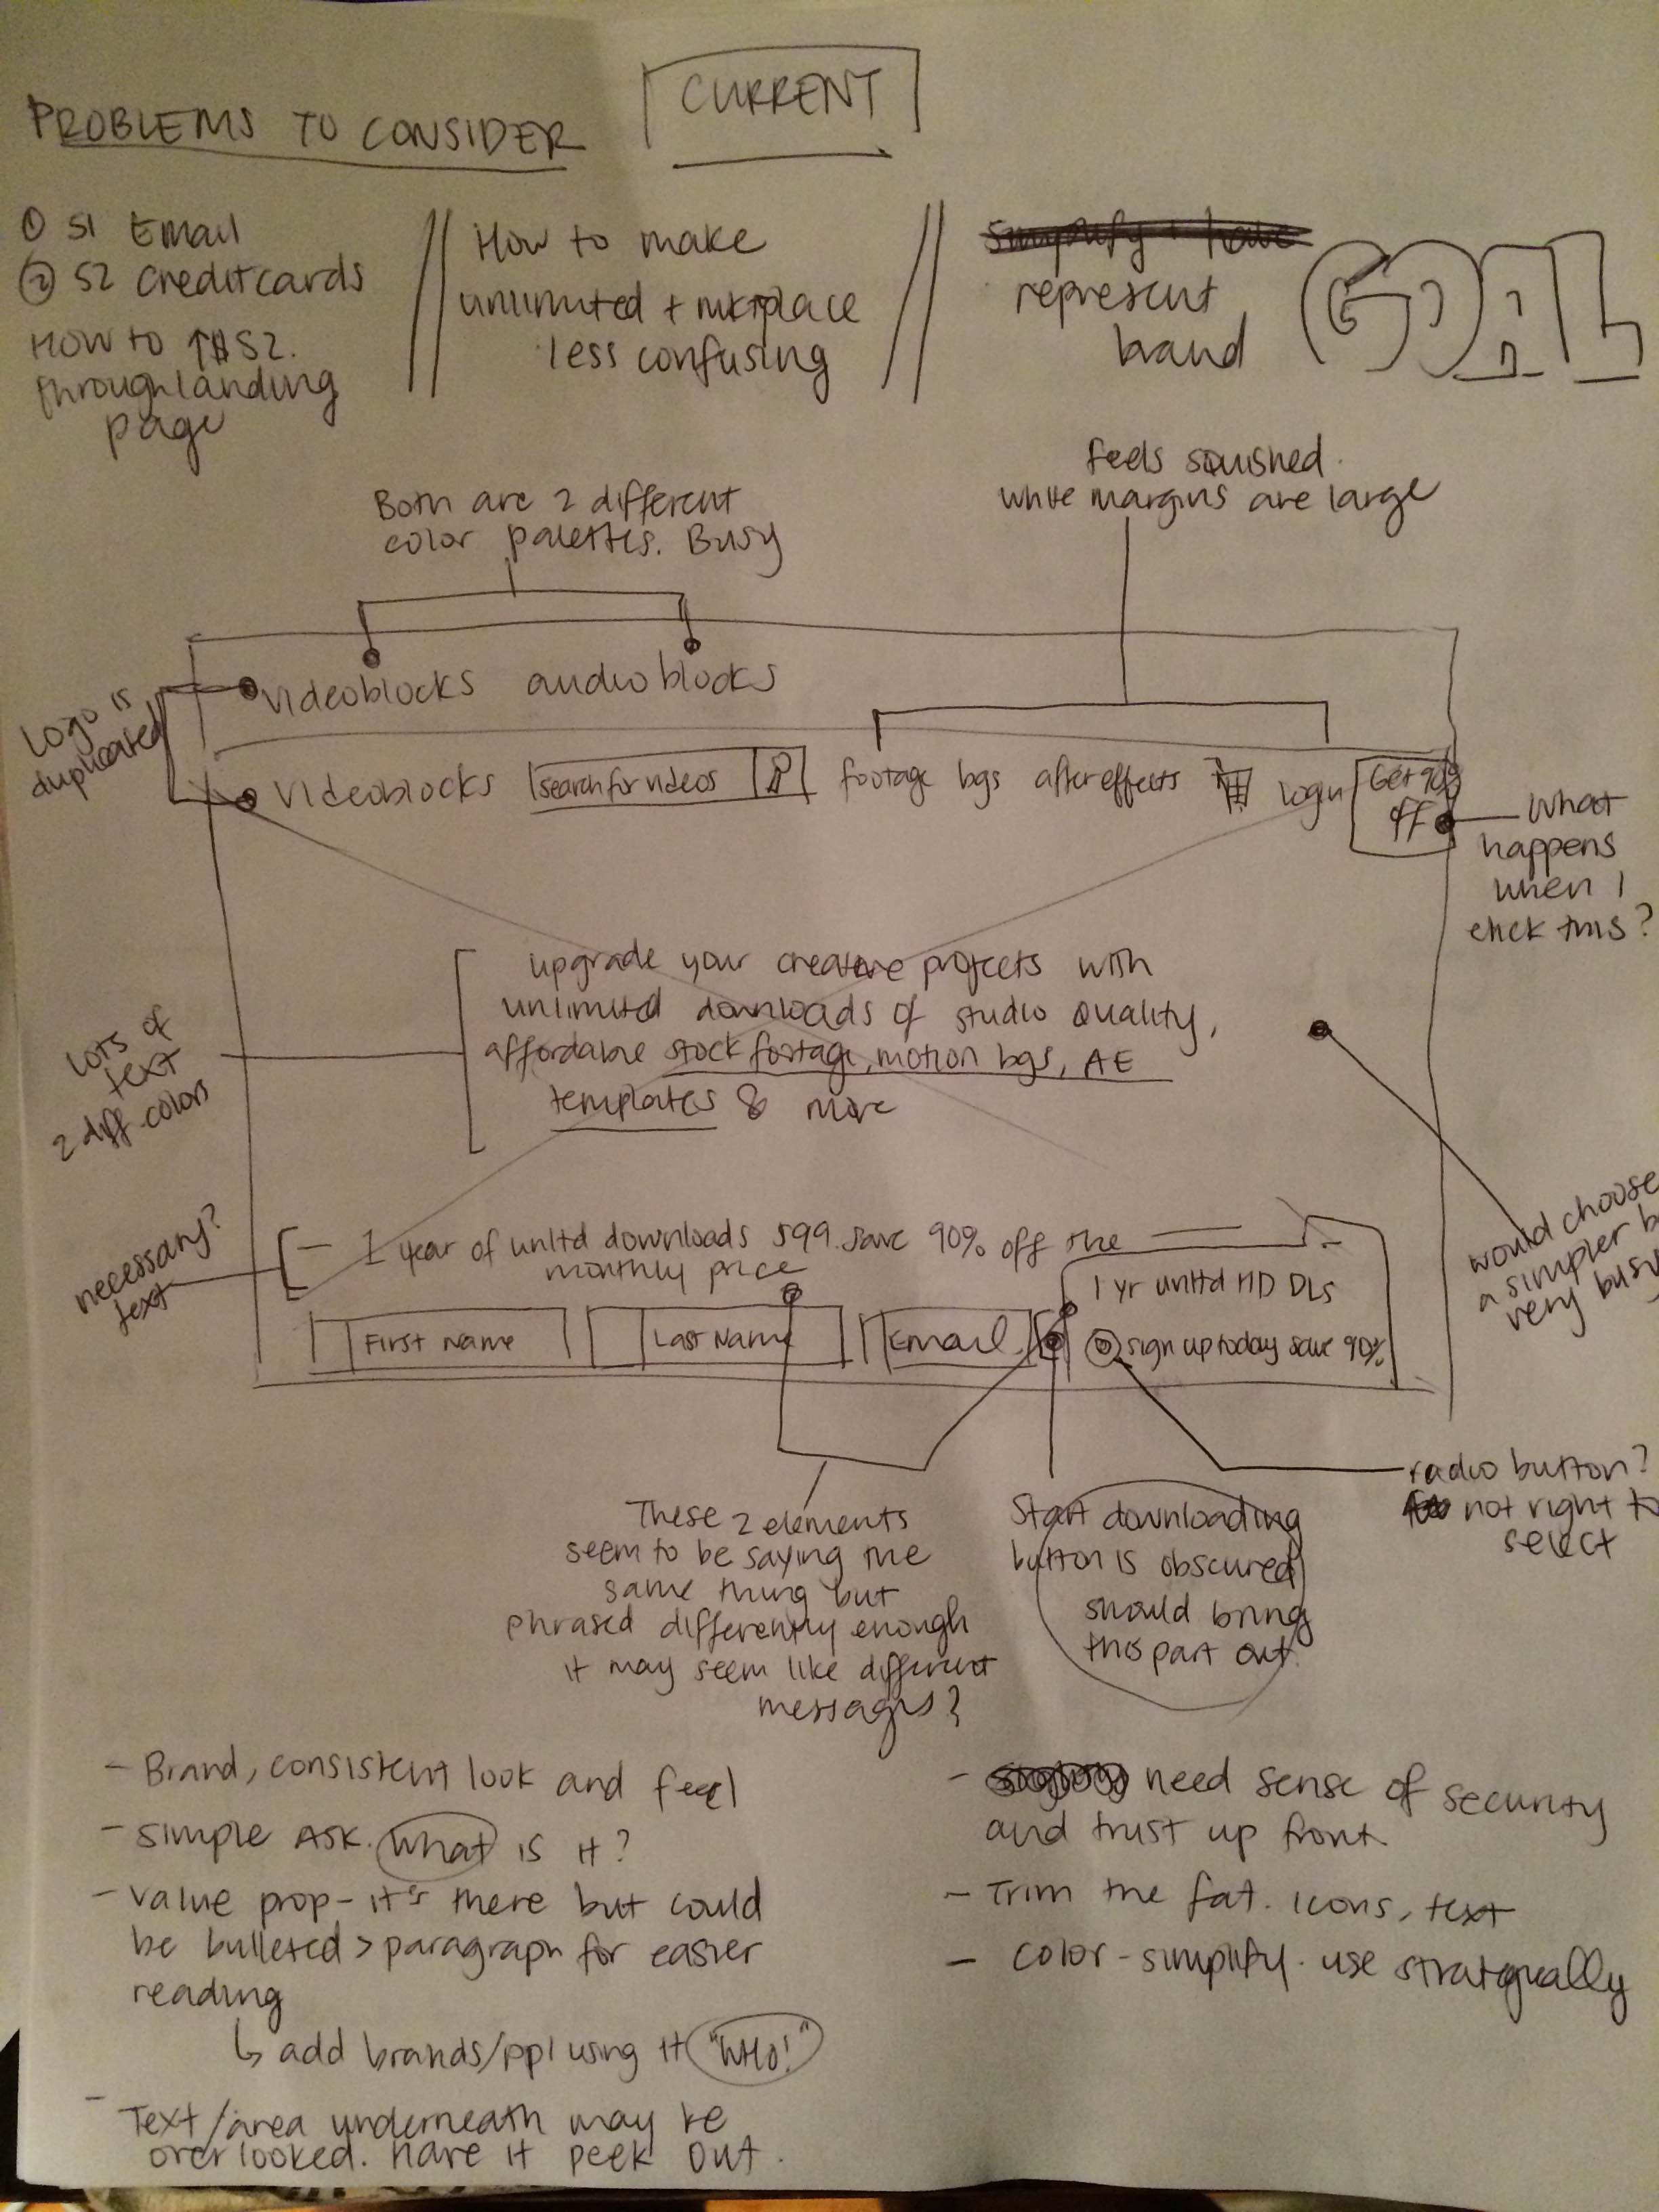 PROBLEMS TO CONSIDER
CURRENT
① S1 Email
② S2 creditcards
HOW TO ↑ # S2.
through landing
page
How to make
unlimited + mktplace
less confusing
simplify + have
represent
brand
GOAL
Both are 2 different
color palettes. Busy
feels squished.
white margins are large
Logo is
duplicated
videoblocks audioblocks
videoblocks search for videos footage bgs aftereffects login Get 90%
off
What
happens
when I
click this?
upgrade your creative projects with
unlimited downloads of studio quality,
affordable stock footage, motion bgs, AE
templates & more
lots of
text
2 diff. colors
would choose
a simpler b
very busy
necessary?
text
1 year of unltd downloads $99. save 90% off the
monthly price
1 yr unltd HD DLS
First name Last Name Email sign up today save 90%
These 2 elements
seem to be saying the
same thing but
phrased differently enough
it may seem like different
messages?
Start downloading
button is obscured
should bring
this part out.
radio button?
not right to
select
- Brand, consistent look and feel
- simple ASK. What is it?
- value prop - it's there but could
be bulleted > paragraph for easier
reading
↳ add brands/ppl using it "WHO!"
- Text/area underneath may be
overlooked. have it peek out.
- need sense of security
and trust up front.
- Trim the fat. icons, text
- color - simplify. use strategically